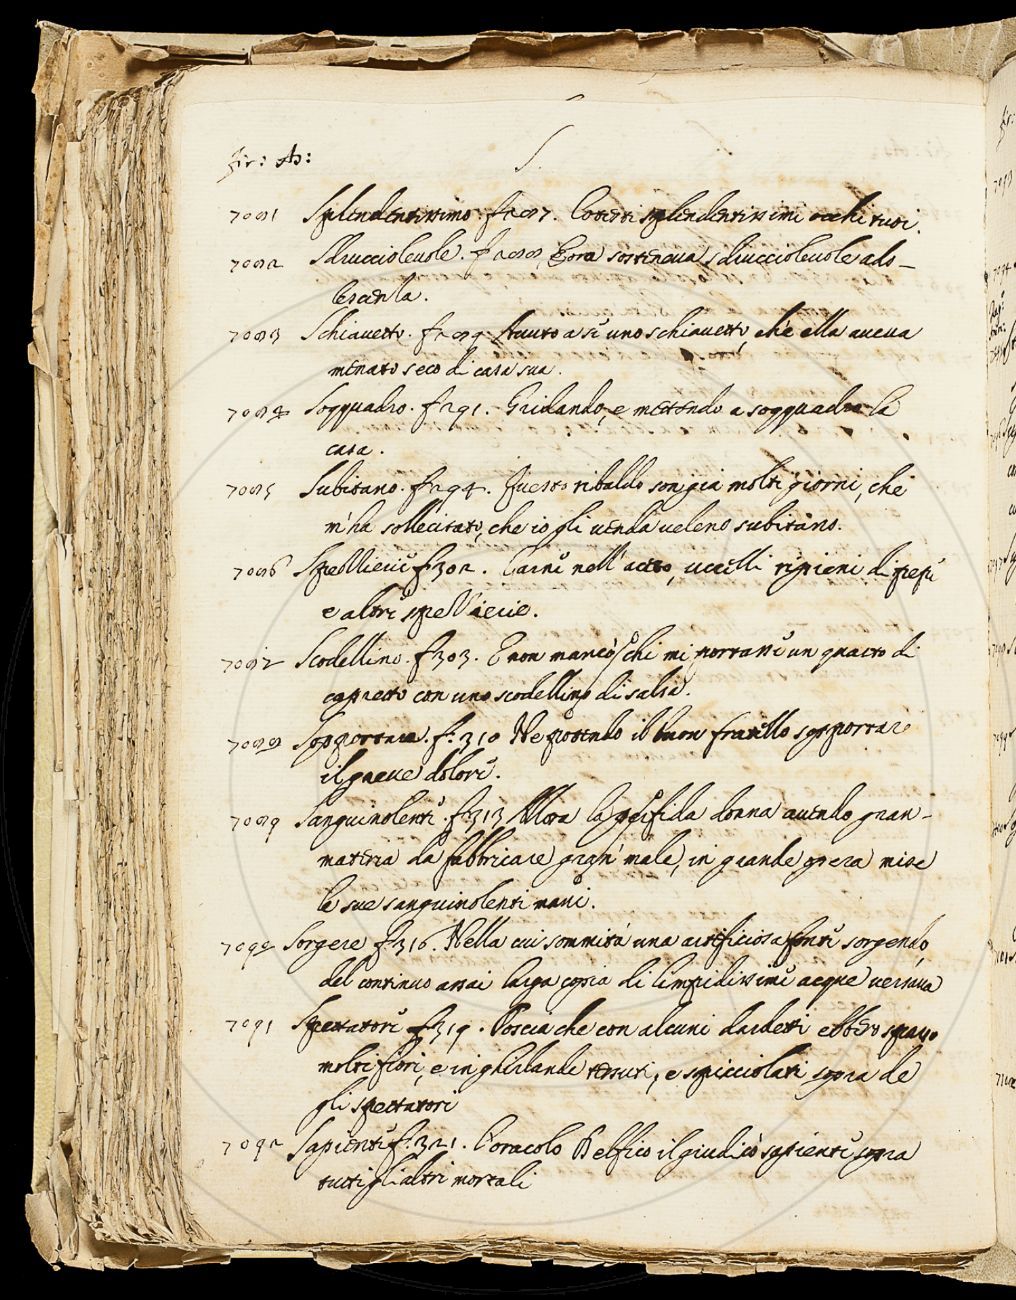 S
Fir: As:
7081 Splendentissimo. f. 287. Cotesti splendentissimi occhi tuoi.
7082 Sdrucciolevole. f. 288. Lora sosteneva sdrucciolevole ado-
lescenza.
7083 Schiavetto. f. 289 Avuto a sè uno schiavetto, che ella aveva
menato seco di casa sua.
7084 Soqquadro. f. 291. Gridando, e metendo a soqquadro la
casa.
7085 Subitano. f. 294. Questo ribaldo son gia molti giorni, che
m'ha sollecitato, che io gli venda veleno subitano.
7086 f. 302. Carni nell'aceto, uccelli ripieni di pepe
e altre
7087 Scodellino. f. 303. E non mancò chi mi portasse un quarto di
capretto con uno scodellino di salsa.
7088 Sopportare. f. 310 Ne potendo il buon fratello sopportare
il grave dolore.
7089 Sanguinolente. f. 313 Allora la perfida donna avendo gran
materia da fabbricare gran male, in grande opera mise
le sue sanguinolenti mani.
7090 Sorgere f. 316. Nella cui sommità una artificiosa fonte sorgendo
del continuo assai larga copia di limpidissime acque versava
7091 Spettatori f. 319. Poscia che con alcuni dardetti ebbero
molti fiori, e in ghirlande tessuti, e spicciolati sopra de
gli spettatori
7092 Sapiente f. 321. L'oracolo Delfico il giudicò sapiente sopra
tutti gli altri mortali